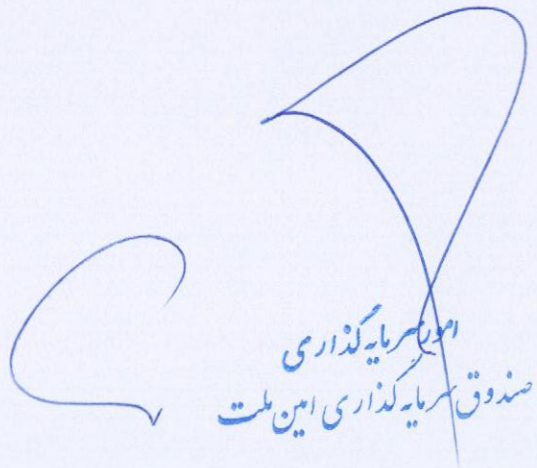 امور سرمایه گذاری
صندوق سرمایه گذاری امین ملت